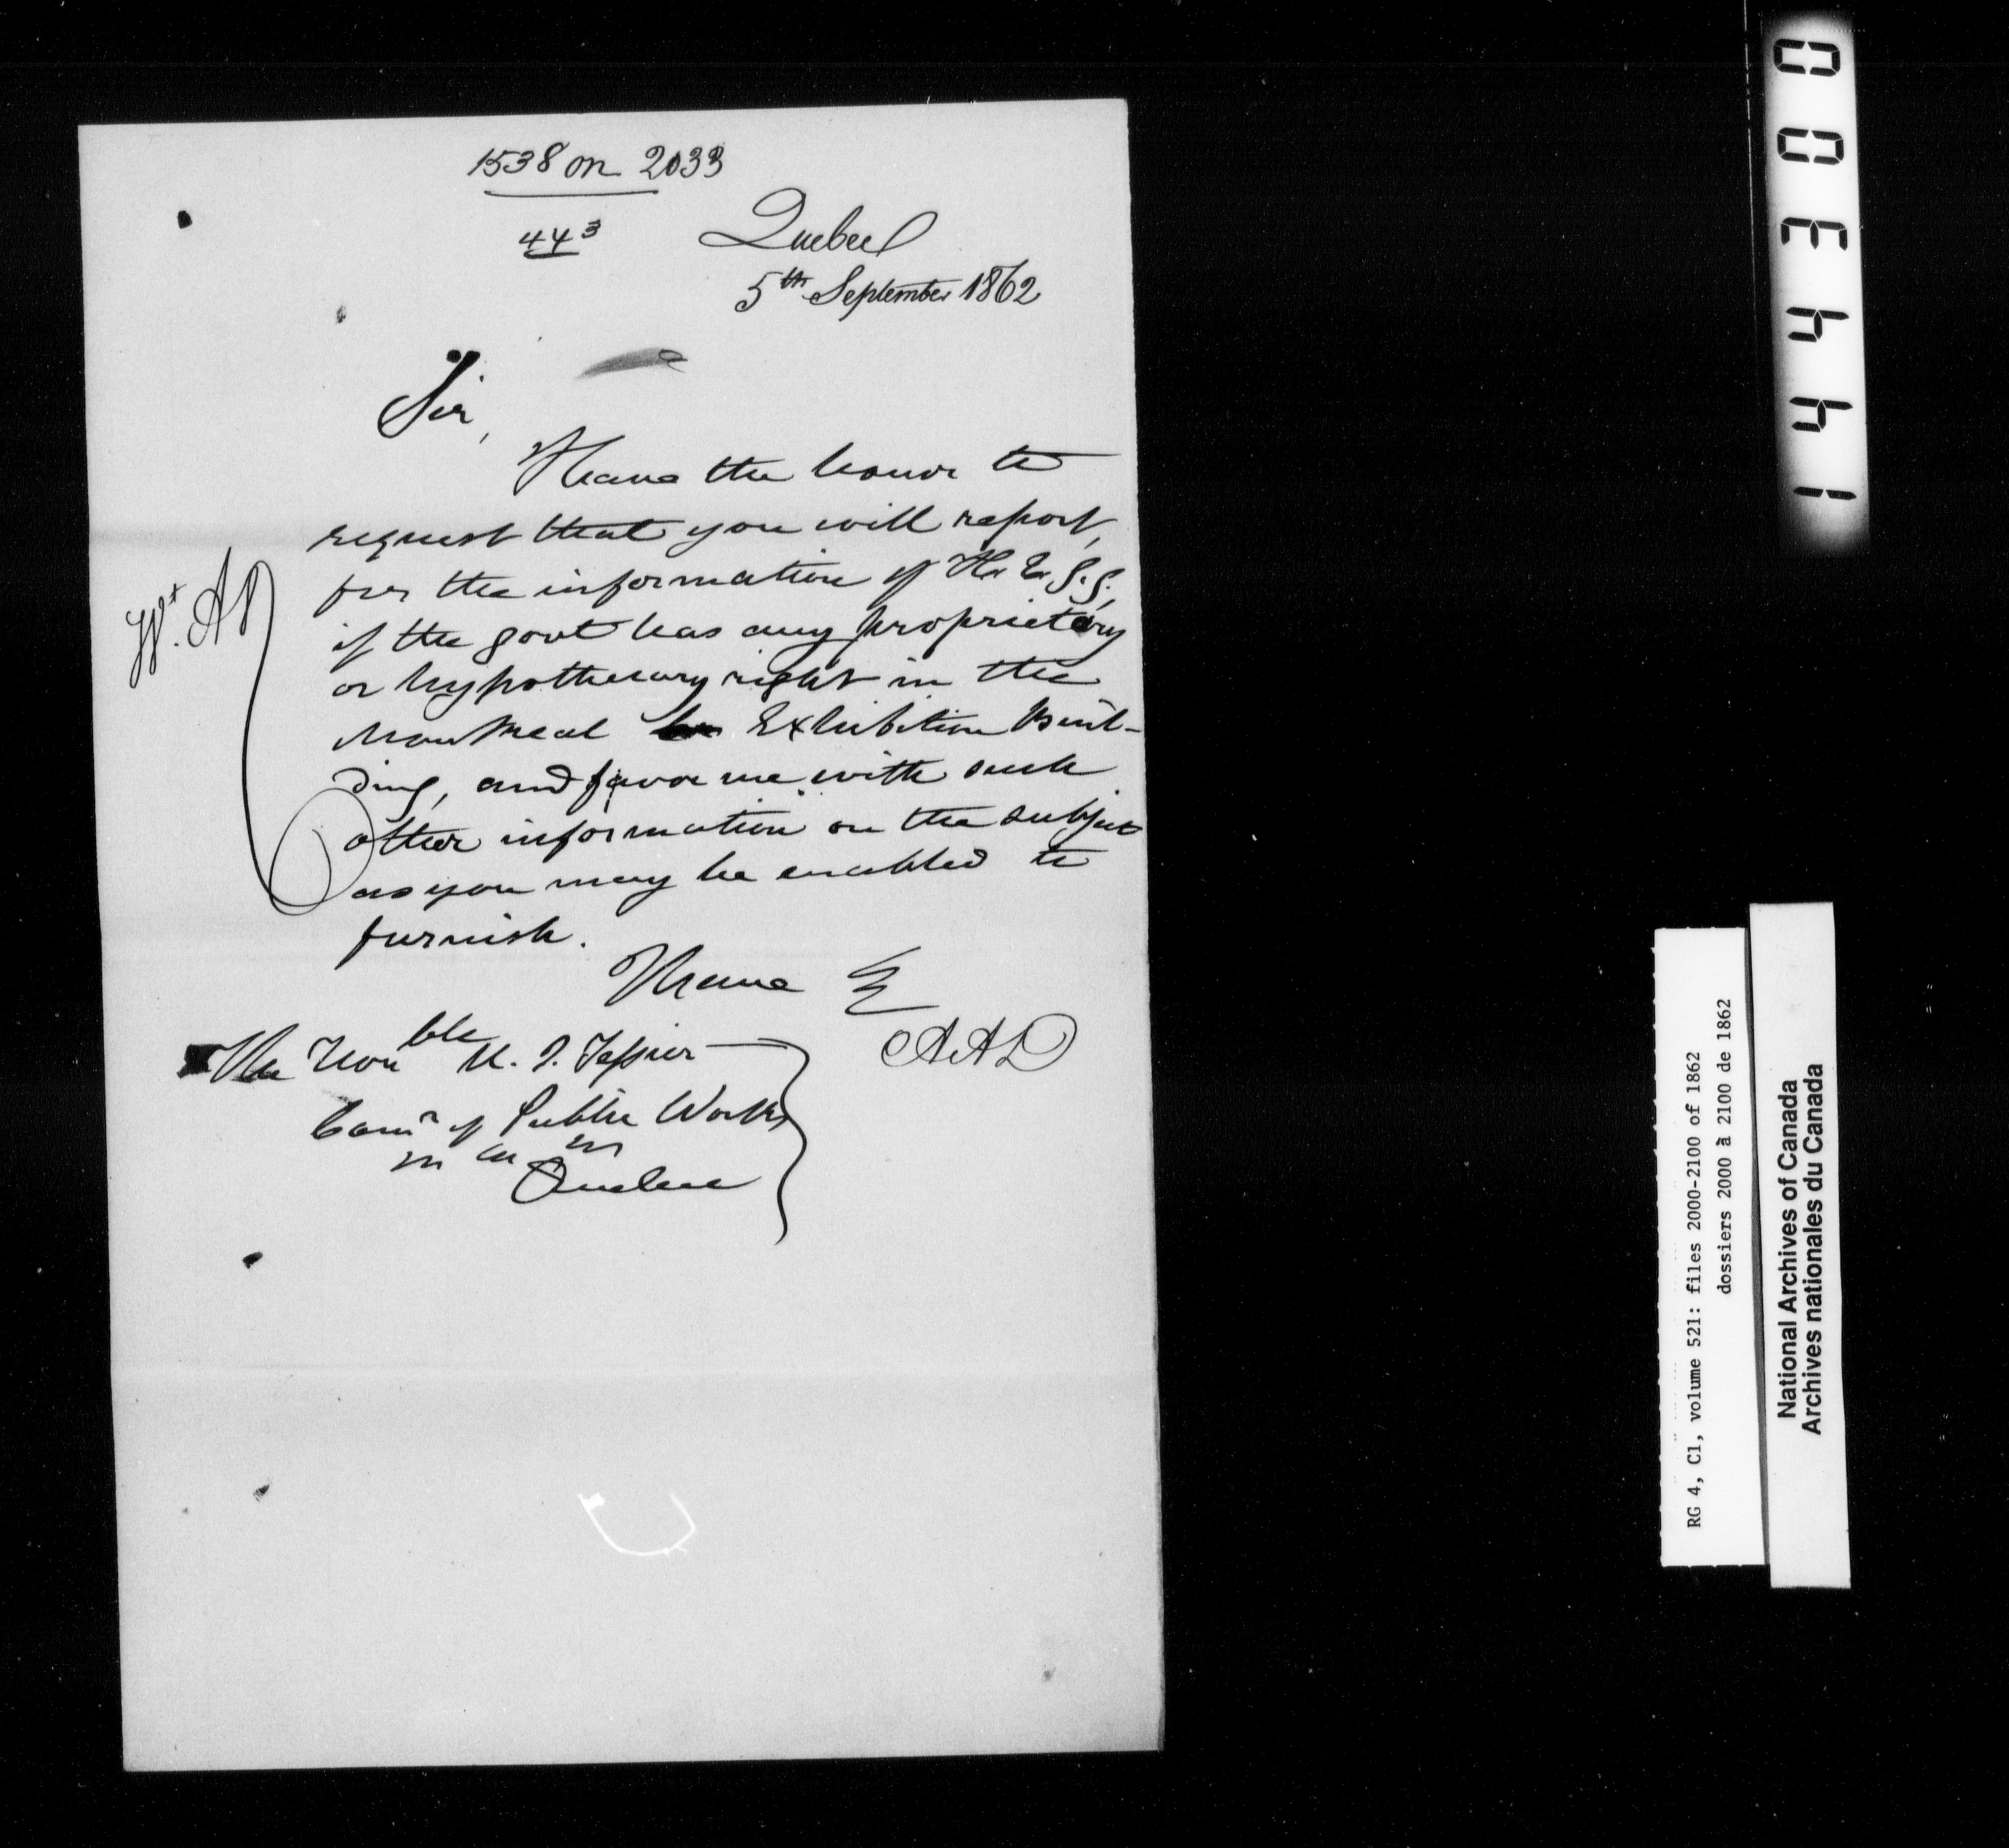 1538 on 2033
44 3
Quebec
5th September 1862
Sir,
I have the honor to
request that you will report,
for the information of H. E. G. G.,
if the govt has any proprietary
or hypothecary right in the
Montreal Exhibition Buil-
ding, and favor me with such
other information on the subject
as you may be enabled to
furnish.
I have &
AAD
The Honble U. J. Tessier
Comr of Public Works
Quebec
003441
RG 4, C1, volume 521: files 2000-2100 of 1862
dossiers 2000 à 2100 de 1862
National Archives of Canada
Archives nationales du Canada